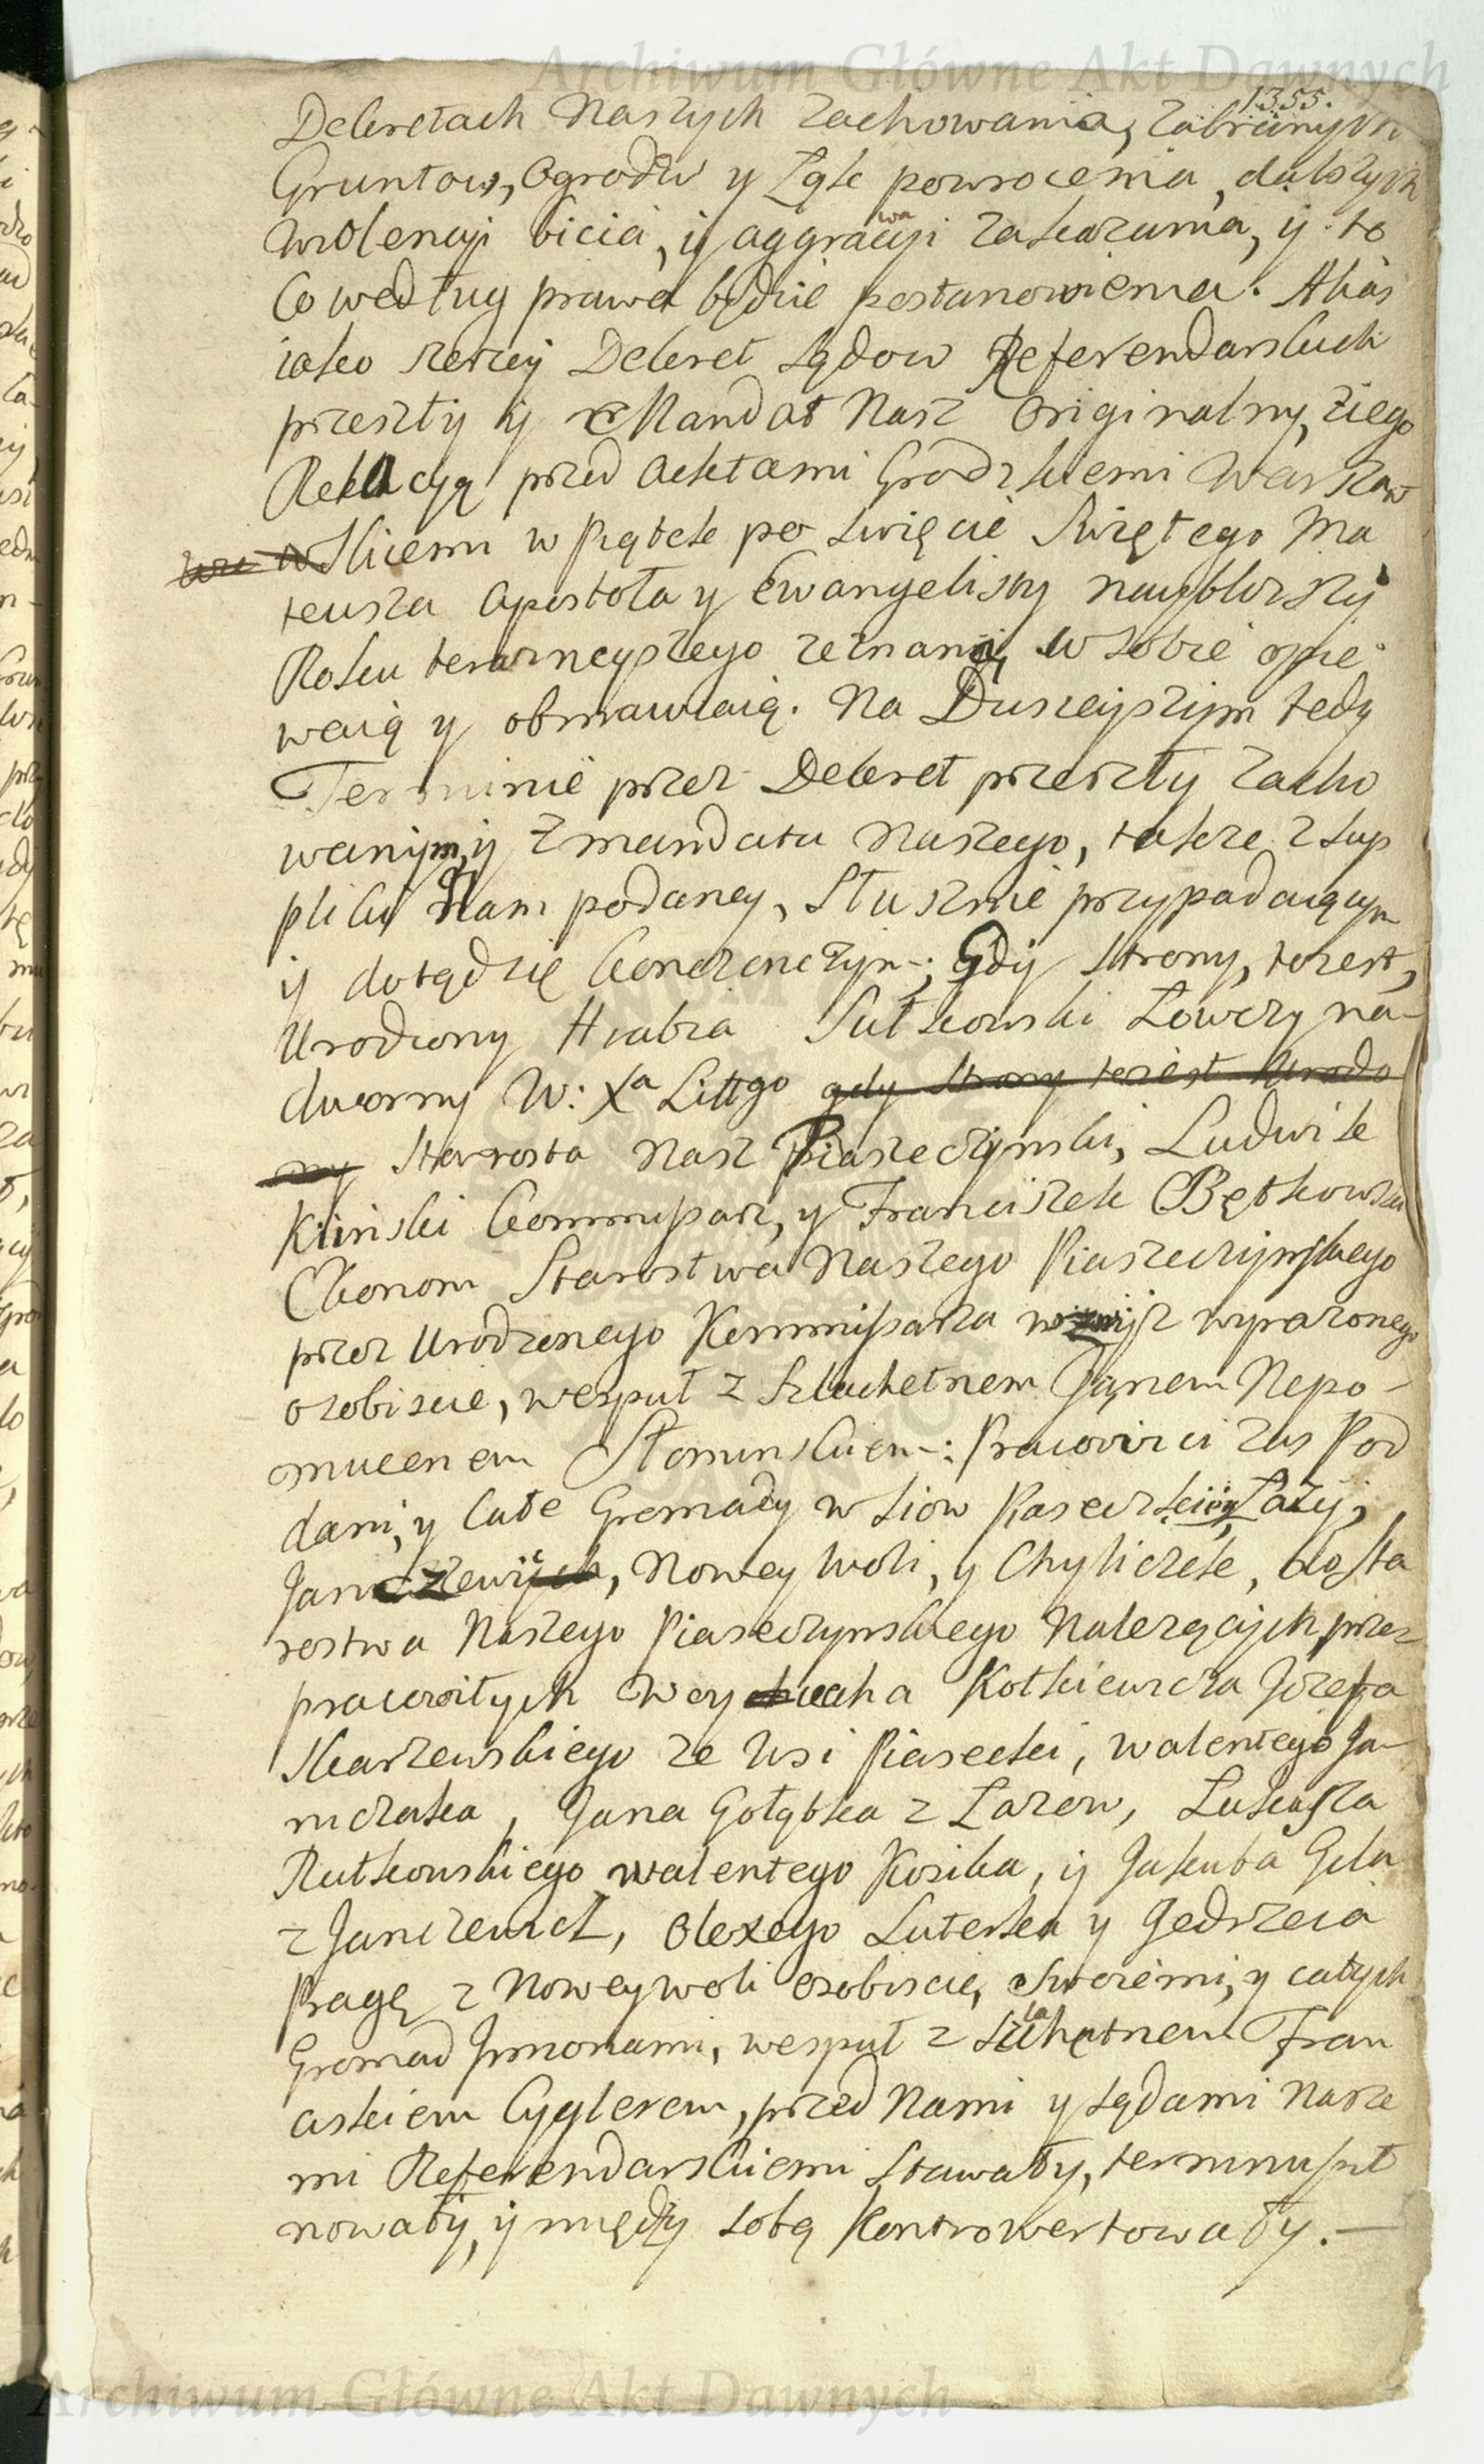 Archiwum Główne Akt Dawnych
1355.
Dekretach Naszych zachowania, zabranych
Gruntow, Ogrodow y Łąk powrocenia, dalszych
wiolencyi bicia, y aggrawacyi zakazania, y to
co według prawa będzie postanowienia. Alias
iako szerzey Dekret Sądow Referendarskich
przeszły y Mandat Nasz Originalny, ziego
Relacyą przed Aktami Grodzkiemi Warszaw
skiemi w Piątek po Swięcie Swiętego Ma
teusza Apostoła y Ewangelisty naybliższy
Roku teraznieyszego zeznaną w sobie opie
waią y obmawiaią. Na Dzisieyszym tedy
Terminie przez Dekret przeszły zacho
wanym, y z mandatu Naszego, także z sup
pliki Nam podaney, słusznie przypadaiącym
y dotąd się kończącym: Gdy strony, to iest,
Urodzony Hrabia Sułkowski Łowczy na
dworny W: Xa Littgo gdy strony to iest Urodzo
ny Starosta Nasz Piaseczynski, Ludwik
Kiinski Kommissarz, y Franciszek Bętkowski
Ekonom Starostwa Naszego Piaseczynskiego
przez Urodzonego Kommissarza wyż wyrażonego
osobiscie, wespuł z Szlachetnem Janem Nepo-
mucenem Słominskiem: Pracowici zas Pod
dani, y całe Gromady wsiow Piaseczki, Łazy,
Janczewic, Nowey Woli, y Chyliczek, do Sta
rostwa Naszego Piaseczynskiego należących, przez
pracowitych Woyciecha Kotkiewicza Jozefa
Skarzewskiego ze wsi Piasecki, Walentego Ja-
niczaka, Jana Gołąbka z Łazow, Łukasza
Rutkowskiego Walentego Kosika, y Jakuba Gila
z Janczewic, Olexego Luterka y Jędrzeia
Pragę z Nowey woli osobiscie, swoiemi, y całych
Gromad Jmionami, wespuł z Szlachetnem Fran
ciszkiem Cyglerem, przed Nami y Sądami Nasze
mi Referendarskiemi stawały, terminu pil
nowały, y między sobą kontrowertowały.—
Archiwum Główne Akt Dawnych